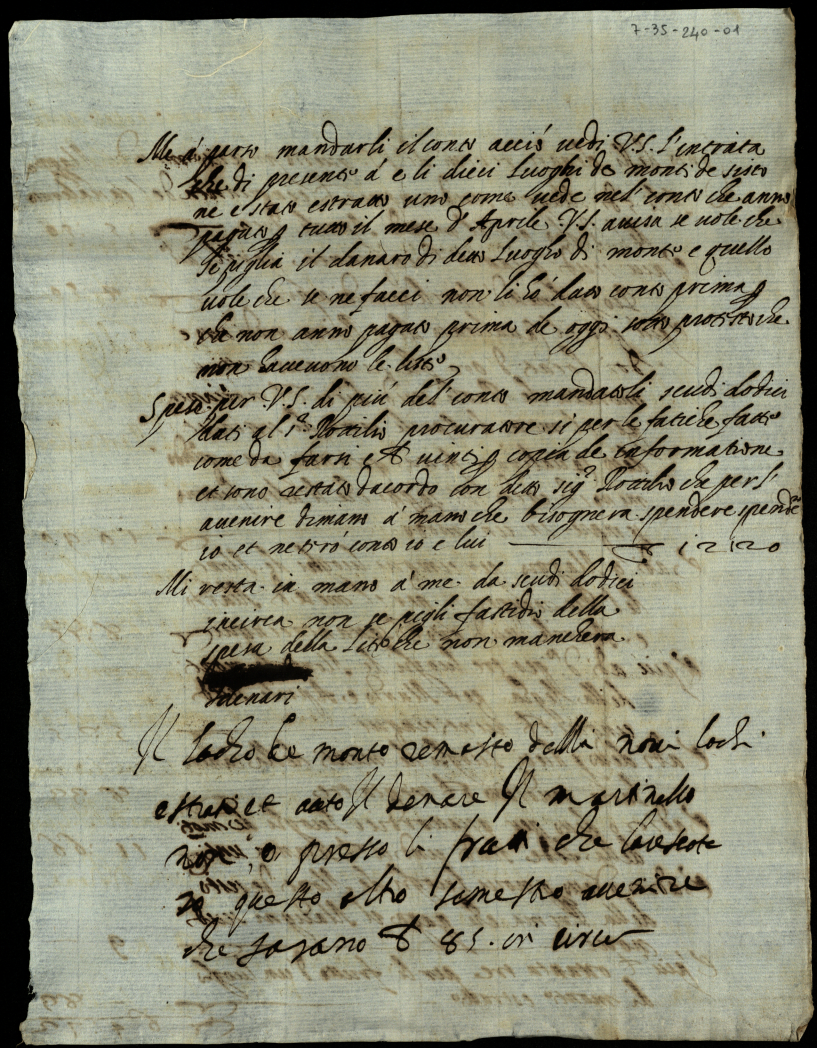 7-35-240-01
Me á parso mandarli il conto acciò vedi V.S. l'intrata
che di presente á e li dieci luoghi de monti de sisto
ne e stato estratto uno come vede nel conto che anno
pagato tutto il mese d'Aprile V.S. avisa se vole che
si piglia il danaro di detto luogho di monte e quello
vole che se ne facci non li hó dato conto prima
che non anno pagato prima de oggi sotto protesto che
non havevono le liste
Spese per V.S. di piú del conto mandatoli scudi dodici
dati al sr. procuratore si per le fatiche fatte
come da farsi et vinti copia de informatione
et sono restato dacordo con detto sigr. che per l'
avenire di mano á mano che bisognera spendere
io et ne tiró conto io e lui 12 120
Mi resta in mano á me da scudi dodici
incirca non se pigli fastidio della
spesa della lite che non manchera
denari
Il locho de monte remasto delli novi lochi
estratti et auto Il denare Il martinello
non o presso li frati che
questo altro semestro avenire
che sarano 85. in circa